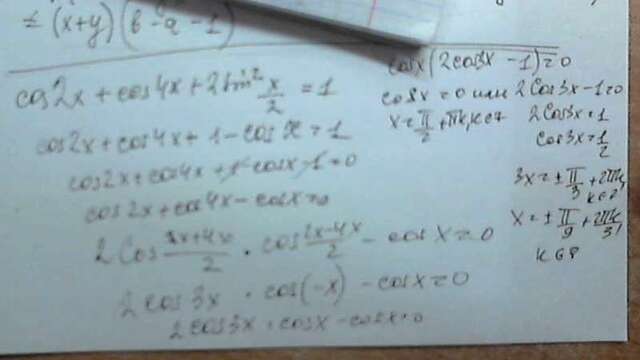 ≤ (x+y)(b-a-1)
cos2x + cos4x + 2sin² x/2 = 1
cos2x + cos4x + 1 - cosx = 1
cos2x + cos4x + 1 - cosx - 1 = 0
cos2x + cos4x - cosx = 0
2cos (2x+4x)/2 · cos (2x-4x)/2 - cosx = 0
2cos3x · cos(-x) - cosx = 0
2cos3x · cosx - cosx = 0
cosx(2cos3x - 1) = 0
cosx = 0 или 2cos3x - 1 = 0
x = π/2 + πk, k∈Z
2cos3x = 1
cos3x = 1/2
3x = ± π/3 + 2πk,
k∈Z
x = ± π/9 + 2πk/3,
k∈Z